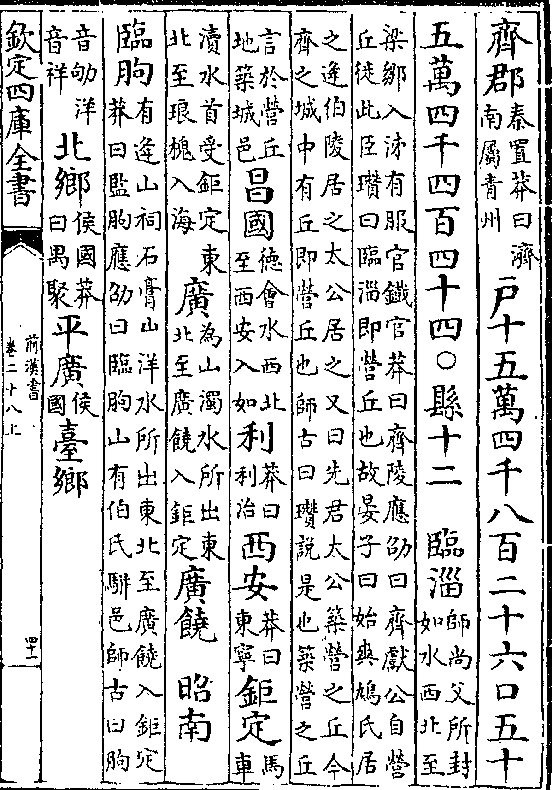 齊郡秦置莽曰濟南屬青州 户十五萬四千八百二十六口五十
五萬四千四百四十四○縣十二 臨淄師尚父所封如水西北至
梁鄒入泲有服官鐵官莽曰齊陵應劭曰齊獻公自營
丘徒此臣瓚曰臨淄即營丘也故晏子曰始與鳩氏居
之逄伯陵居之太公居之又曰先君太公築營之丘今
齊之城中有丘即營丘也師古曰瓚說是也築營之丘
言於營丘地築城邑 昌國德會水西北至西安入如 利莽曰利治 西安莽曰東寧 鉅定馬車
瀆水首受鉅定東北至琅槐入海 廣為山濁水所出東北至廣饒入鉅定 廣饒 昭南
臨朐有逄山祠石膏山洋水所出東北至廣饒入鉅定
莽曰監朐應劭曰臨朐山有伯氏駢邑師古曰朐
音劬洋音祥 北鄉侯國莽曰禺聚 平廣侯國 臺鄉
欽定四庫全書
前漢書
卷二十八上